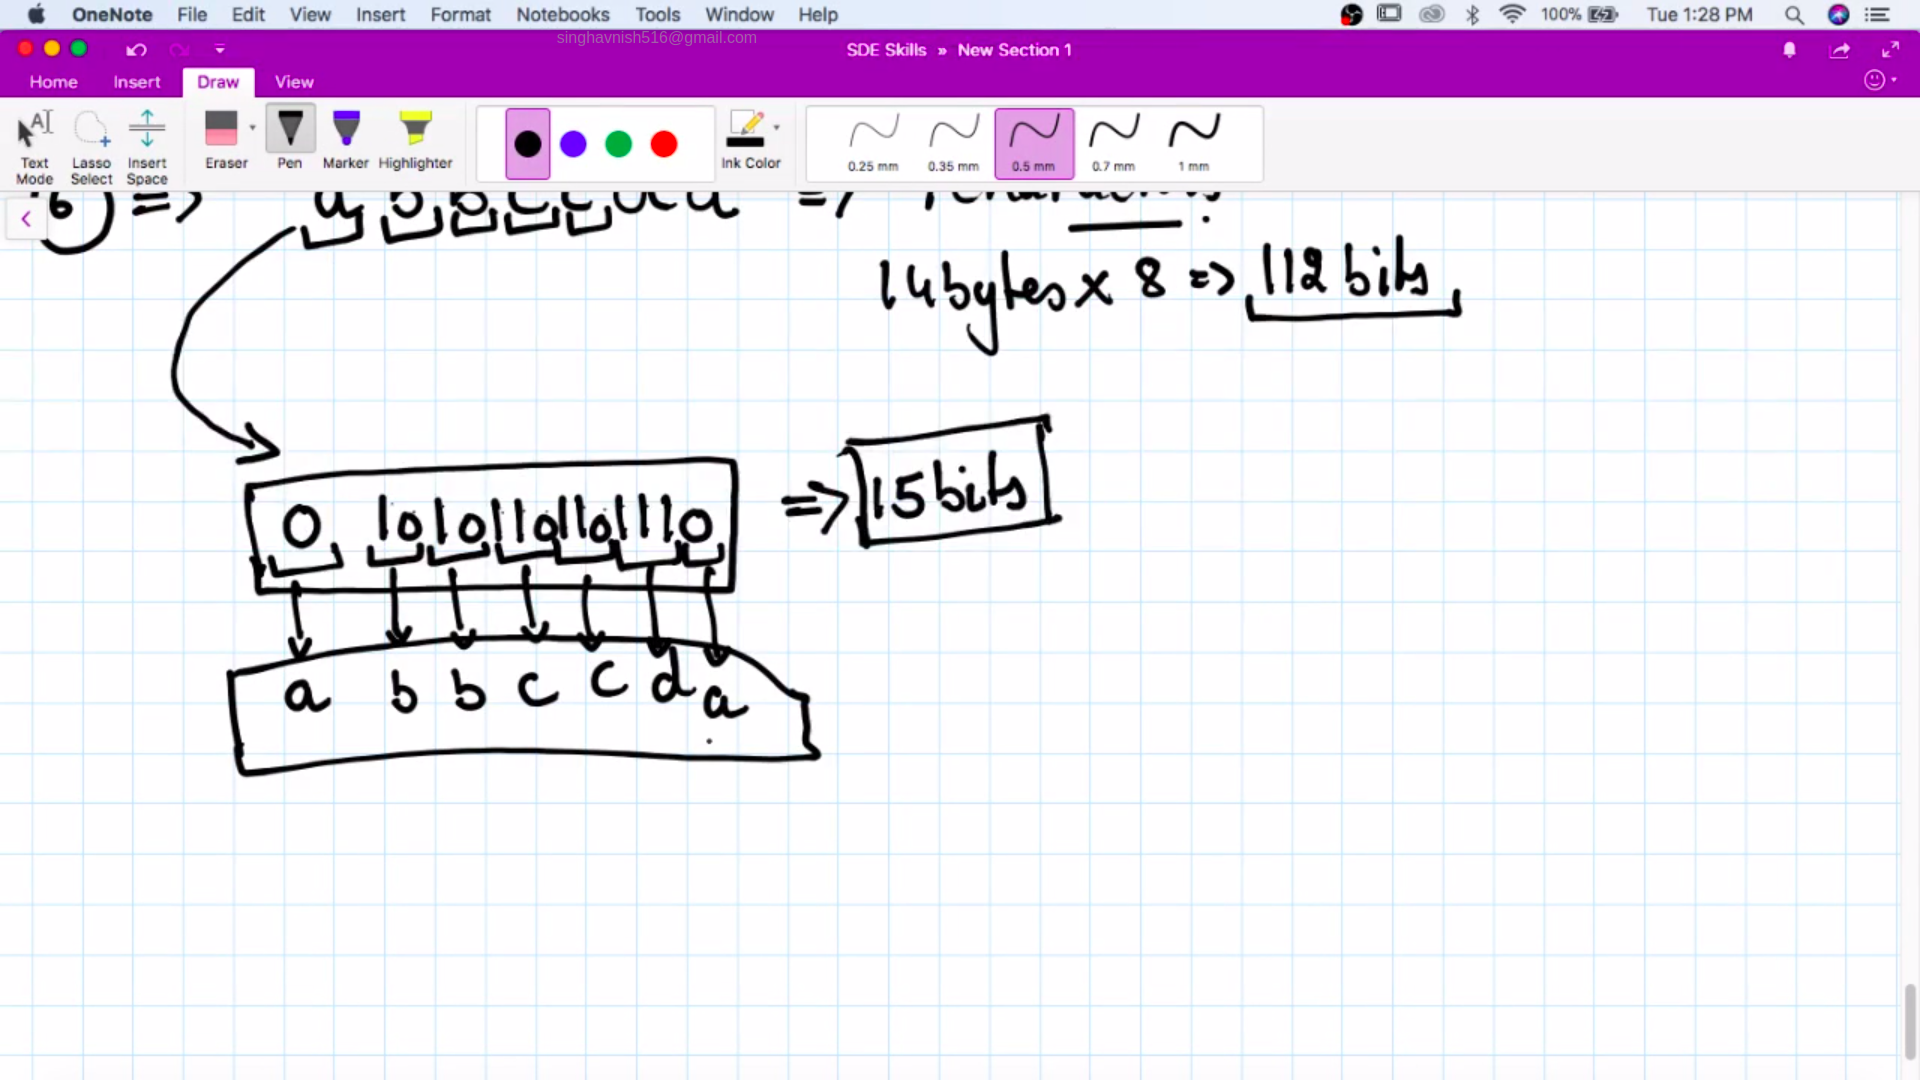 OneNote File Edit View Insert Format Notebooks Tools Window Help 100% Tue 1:28 PM
singhavnish516@gmail.com
SDE Skills » New Section 1
Home Insert Draw View
Text Mode Lasso Select Insert Space Eraser Pen Marker Highlighter Ink Color 0.25 mm 0.35 mm 0.5 mm 0.7 mm 1 mm
=> a b b c c =>
14 bytes x 8 => 112 bits
0 10 10 110 110 111 0 => 15 bits
a b b c c d a